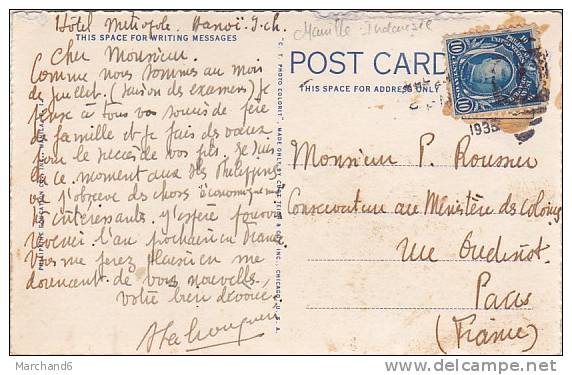 Hôtel Métropole. Hanoï. I.ch.
Manille - Indonésie
THIS SPACE FOR WRITING MESSAGES
Cher Monsieur.
Comme nous sommes au mois
de juillet (saison des examens) je
pense à tous vos soucis de
de famille et je fais des vœux
pour le succès de vos fils. Je suis
en ce moment aux Iles Philippines
où j'observe des choses économiquement
intéressantes. J'espère pouvoir
l'an prochain en France
Vous me ferez plaisir en me
donnant de vos nouvelles.
votre bien dévoué
"C. T. PHOTO COLORIT" MADE ONLY BY CURT TEICH & CO., INC., CHICAGO, U. S. A.
POST CARD
THIS SPACE FOR ADDRESS ONLY
10 10
1935
Monsieur P. Roussier
Conservateur au Ministère des Colonies
rue Oudinot
Paris
(France)
Marchand6
www.delcampe.net